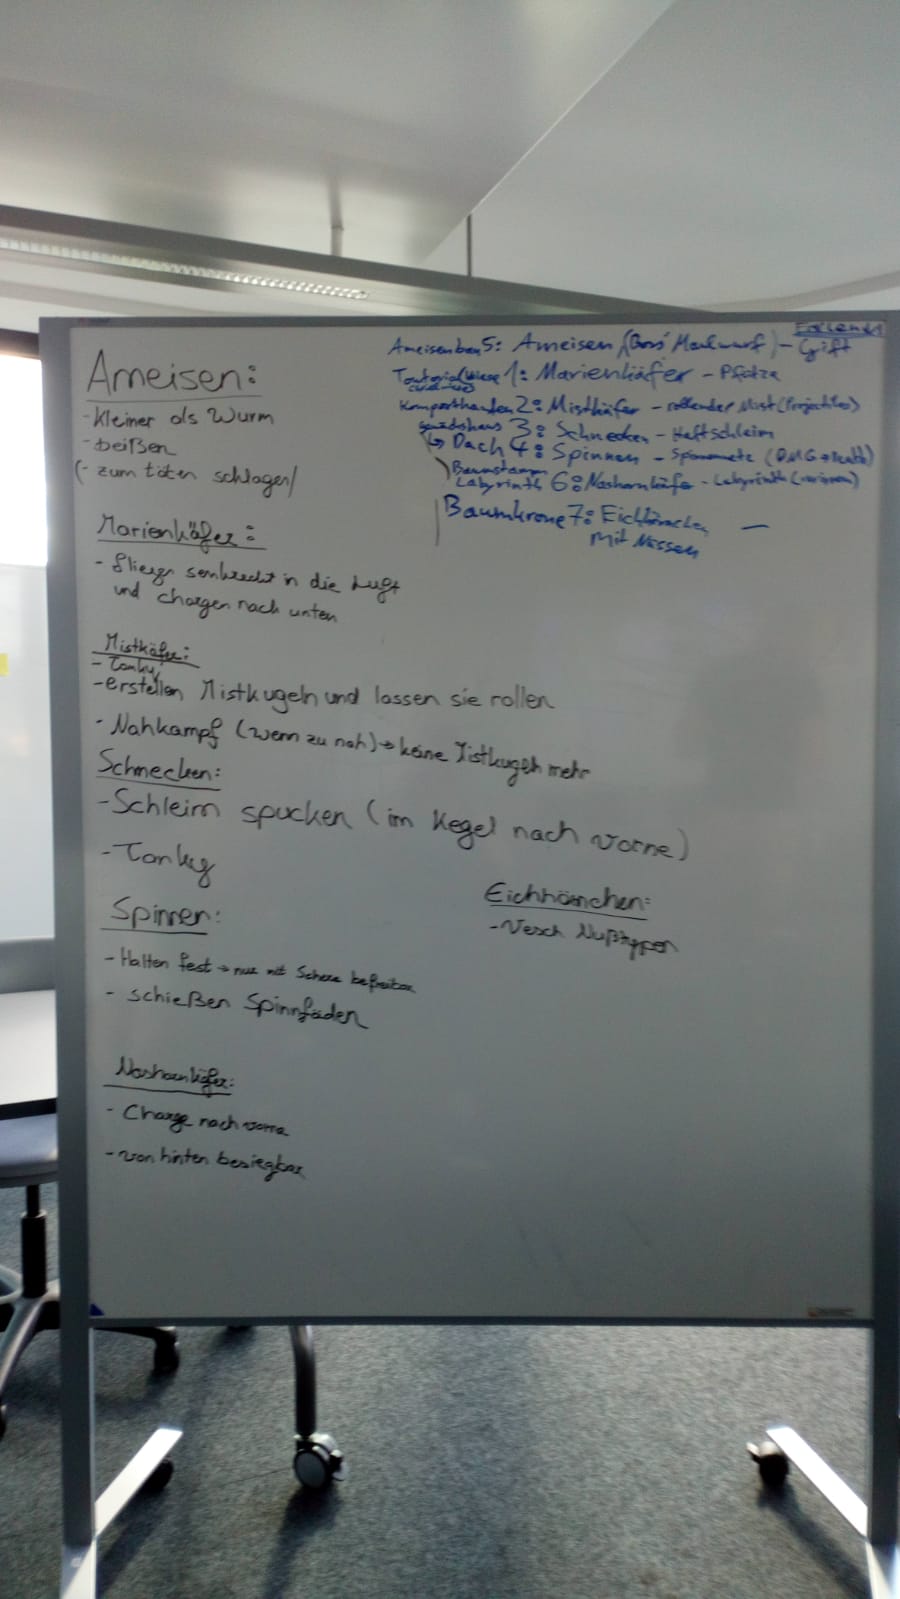 Ameisen:
- kleiner als Wurm
- beißen
(- zum töten schlagen)
Marienkäfer:
- fliegen senkrecht in die Luft
und chargen nach unten
Mistkäfer:
- Tanky
- erstellen Mistkugeln und lassen sie rollen
- Nahkampf (wenn zu nah) → keine Mistkugeln mehr
Schnecken:
- Schleim spucken (im Kegel nach vorne)
- Tanky
Spinnen:
- Halten fest → nur mit Schere befreibar
- schießen Spinnfäden
Nashornkäfer:
- Charge nach vorne
- von hinten besiegbar
Fallen
Ameisenbau 5: Ameisen (Boss Maulwurf) - Gift
Tutorial Wiese 1: Marienkäfer - Pfütze
Komposthaufen 2: Mistkäfer - rollender Mist (Projectiles)
3: Schnecken - Haftschleim
↳ Dach 4: Spinnen - Spinnennetz (DMG + stuck)
Baumstamm
Labyrinth 6: Nashornkäfer - Labyrinth
Baumkrone 7: Eichhörnchen —
mit Nüssen
Eichhörnchen:
- Versch Nußtypen